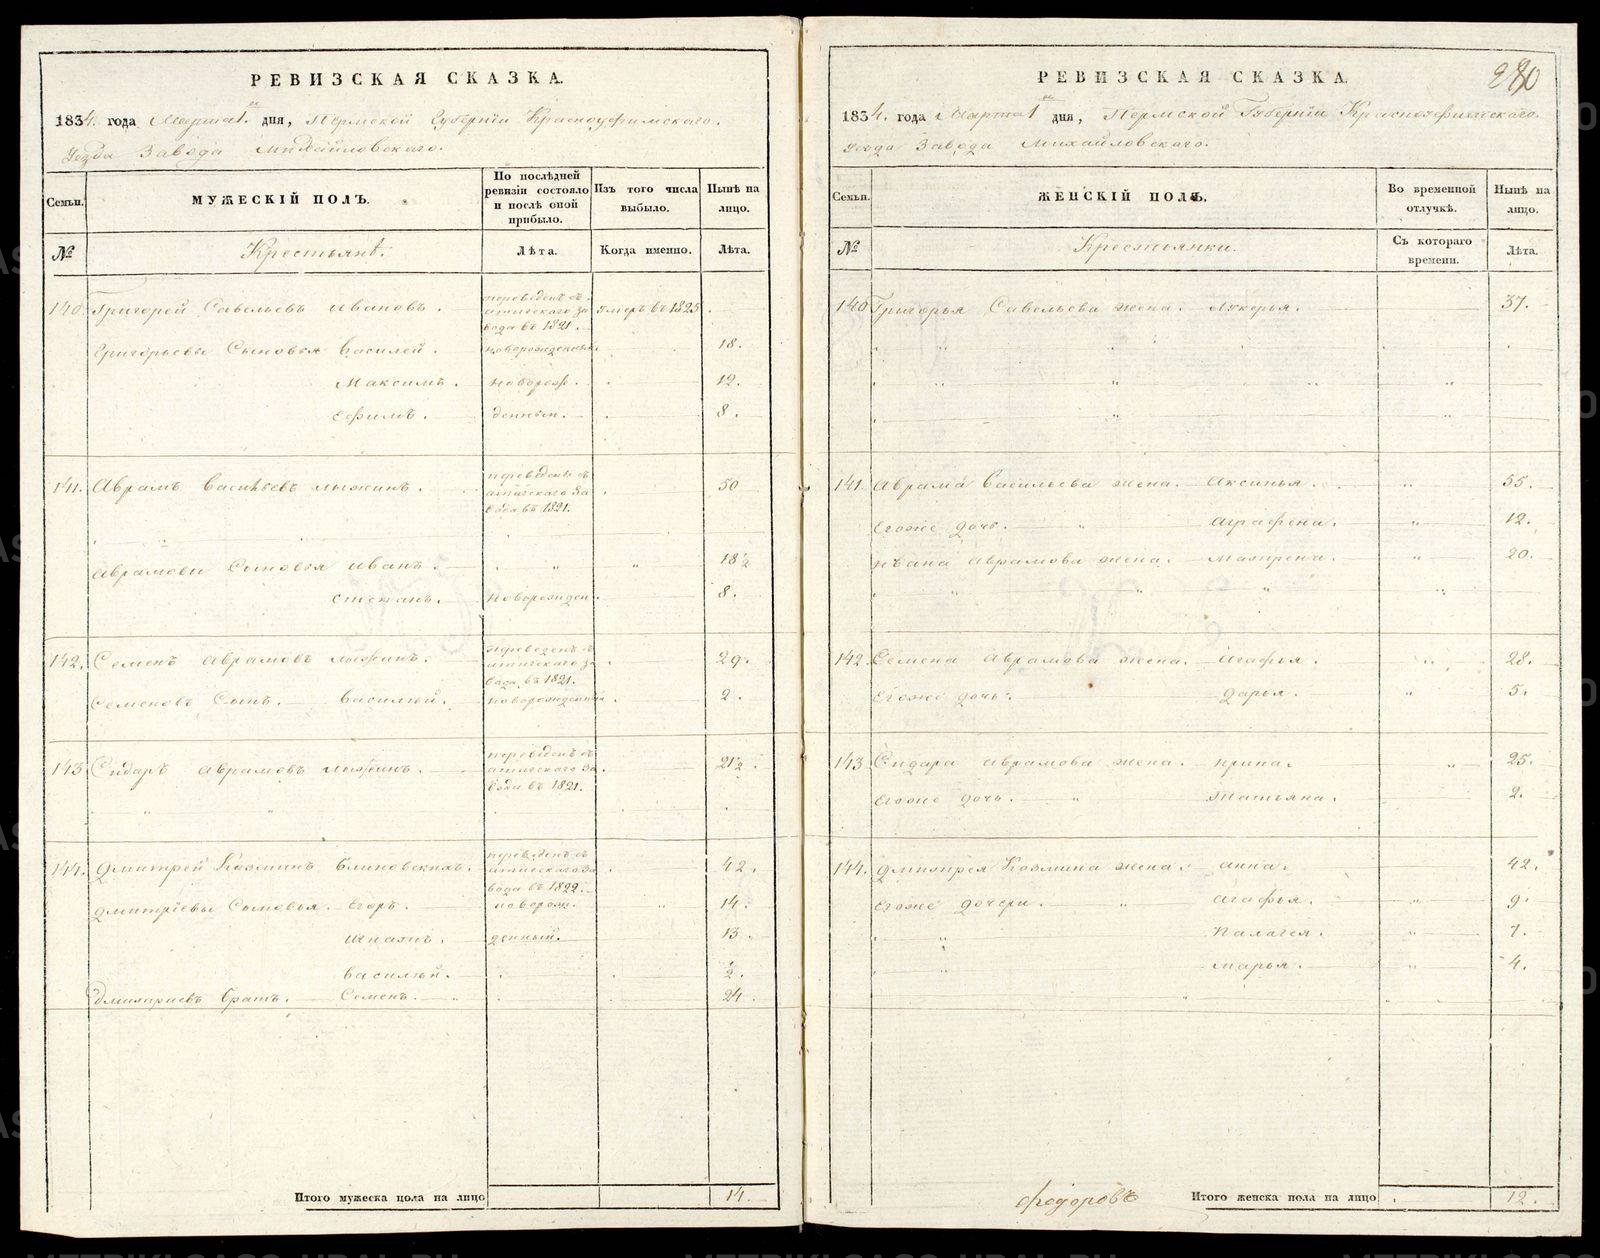 РЕВИЗСКАЯ СКАЗКА.
1834. года Марта 1. дня, Пермской Губернии Красноуфимского.
Уезда Завода Михайловского.
Семьи.
МУЖЕСКІЙ ПОЛЪ.
По послѣдней ревизіи состояло и послѣ оной прибыло.
Изъ того числа выбыло.
Нынѣ на лицо.
№
Крестьянѣ.
Лѣта.
Когда именно.
Лѣта.
140. Григорей Савельевъ Ивановъ. переведенъ съ атигского завода въ 1821. умеръ въ 1825
Григорьевы Сыновья Василей. новорожденныи. 18.
Максимъ. новорож. 12.
Ефимъ. денныи. 8.
141. Аврамъ Васильевъ Лыжинъ. переведенъ съ атигского завода въ 1821. 50
Аврамовы Сыновья Иванъ. 18½
Степанъ. новорожден. 8.
142. Семенъ Аврамовъ Лыжинъ. переведенъ съ атигского завода въ 1821. 29.
Семеновъ Сынъ. Василий. новорожденный. 2.
143 Сидаръ Аврамовъ Лыжинъ. переведенъ съ атигского завода въ 1821. 21½.
144. Дмитрей Козминъ Блиновскихъ. переведенъ съ атигского завода въ 1822. 42.
Дмитріевы Сыновья. Егоръ. новорож. 14.
Игнатъ. денный. 13.
Василий. ½.
Дмитриевъ братъ. Семенъ. 24.
Итого мужеска пола на лицо 14.
280
РЕВИЗСКАЯ СКАЗКА.
1834. года Марта 1 дня, Пермской Губерніи Красноуфимского.
Уезда Завода Михайловского.
Семьи.
ЖЕНСКІЙ ПОЛЪ.
Во временной отлучкѣ.
Нынѣ на лицо.
№
Крестьянки.
Съ котораго времени.
Лѣта.
140 Григорья Савельева жена. Лукерья. 37.
141. Аврама Васильева жена. Аксинья. 55.
Егоже дочь. Аграфена. 12.
Ивана Аврамова жена. Матрена. 20.
142 Семена Аврамова жена. Агафья. 28.
Егоже дочь. Дарья. 5.
143 Сидара Аврамова жена. Ирина. 25.
Егоже дочь. Татьяна. 2.
144. Дмитрея Козмина жена. Анна. 42.
Егоже дочери. Агафья. 9.
Палагея. 7.
Марья. 4.
Федоровъ
Итого женска пола на лицо 12.